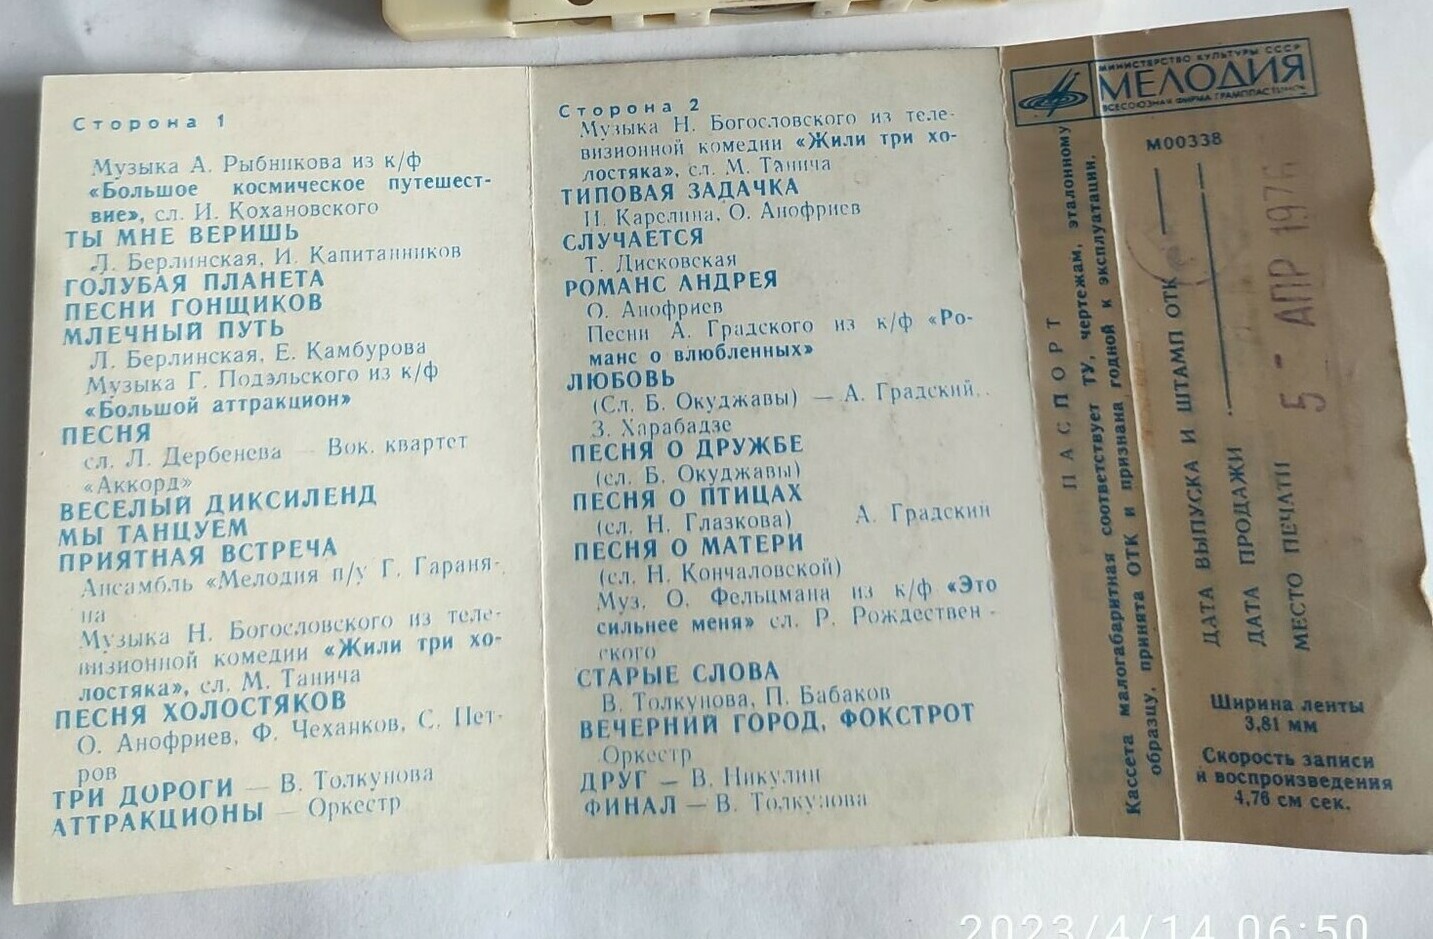 Сторона 1
Музыка А. Рыбникова из к/ф
«Большое космическое путешест-
вие», сл. И. Кохановского
ТЫ МНЕ ВЕРИШЬ
Л. Берлинская, И. Капитанников
ГОЛУБАЯ ПЛАНЕТА
ПЕСНИ ГОНЩИКОВ
МЛЕЧНЫЙ ПУТЬ
Л. Берлинская, Е. Камбурова
Музыка Г. Подэльского из к/ф
«Большой аттракцион»
ПЕСНЯ
сл. Л. Дербенева — Вок. квартет
«Аккорд»
ВЕСЕЛЫЙ ДИКСИЛЕНД
МЫ ТАНЦУЕМ
ПРИЯТНАЯ ВСТРЕЧА
Ансамбль «Мелодия п/у Г. Гараня-
на
Музыка Н. Богословского из теле-
визионной комедии «Жили три хо-
лостяка», сл. М. Танича
ПЕСНЯ ХОЛОСТЯКОВ
О. Анофриев, Ф. Чеханков, С. Пет-
ров
ТРИ ДОРОГИ — В. Толкунова
АТТРАКЦИОНЫ — Оркестр
Сторона 2
Музыка Н. Богословского из теле-
визионной комедии «Жили три хо-
лостяка», сл. М. Танича
ТИПОВАЯ ЗАДАЧКА
И. Карелина, О. Анофриев
СЛУЧАЕТСЯ
Т. Дисковская
РОМАНС АНДРЕЯ
О. Анофриев
Песни А. Градского из к/ф «Ро-
манс о влюбленных»
ЛЮБОВЬ
(Сл. Б. Окуджавы) — А. Градский,
З. Харабадзе
ПЕСНЯ О ДРУЖБЕ
(сл. Б. Окуджавы)
ПЕСНЯ О ПТИЦАХ
(сл. Н. Глазкова) А. Градский
ПЕСНЯ О МАТЕРИ
(сл. Н. Кончаловской)
Муз. О. Фельцмана из к/ф «Это
сильнее меня» сл. Р. Рождествен-
ского
СТАРЫЕ СЛОВА
В. Толкунова, П. Бабаков
ВЕЧЕРНИЙ ГОРОД, ФОКСТРОТ
Оркестр
ДРУГ — В. Никулин
ФИНАЛ — В. Толкунова
МИНИСТЕРСТВО КУЛЬТУРЫ СССР
МЕЛОДИЯ
ВСЕСОЮЗНАЯ ФИРМА ГРАМПЛАСТИНОК
М00338
ПАСПОРТ
Кассета малогабаритная соответствует ТУ, чертежам, эталонному
образцу, принята ОТК и признана годной к эксплуатации.
ДАТА ВЫПУСКА И ШТАМП ОТК
ДАТА ПРОДАЖИ
МЕСТО ПЕЧАТИ
5 - АПР 1976
Ширина ленты
3,81 мм
Скорость записи
и воспроизведения
4,76 см сек.
2023/4/14 06:50